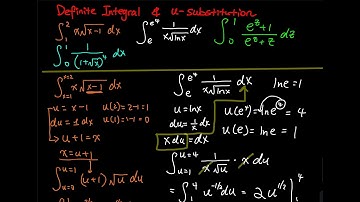 Definite Integral & u-substitution
∫₁² x√(x-1) dx   ∫ₑ^(e⁴) 1/(x√(ln x)) dx   ∫₀¹ (e^z+1)/(e^z+z) dz
∫₀¹ 1/(1+√x)⁴ dx
∫_(x=1)^(x=2) x√(x-1) dx
u = x-1   u(2)=2-1=1
du = 1 dx   u(1)=1-1=0
u+1 = x
x = u+1
∫_(u=0)^(u=1) (u+1)√u du
∫ₑ^(e⁴) 1/(x√(ln x)) dx   ln e = 1
u = ln x   u(e⁴) = ln e⁴ = 4
du = 1/x dx   u(e) = ln e = 1
x du = dx
∫_(u=1)^(u=4) 1/(x√u) · x du
= ∫₁⁴ u^(-1/2) du = 2u^(1/2) |₁⁴